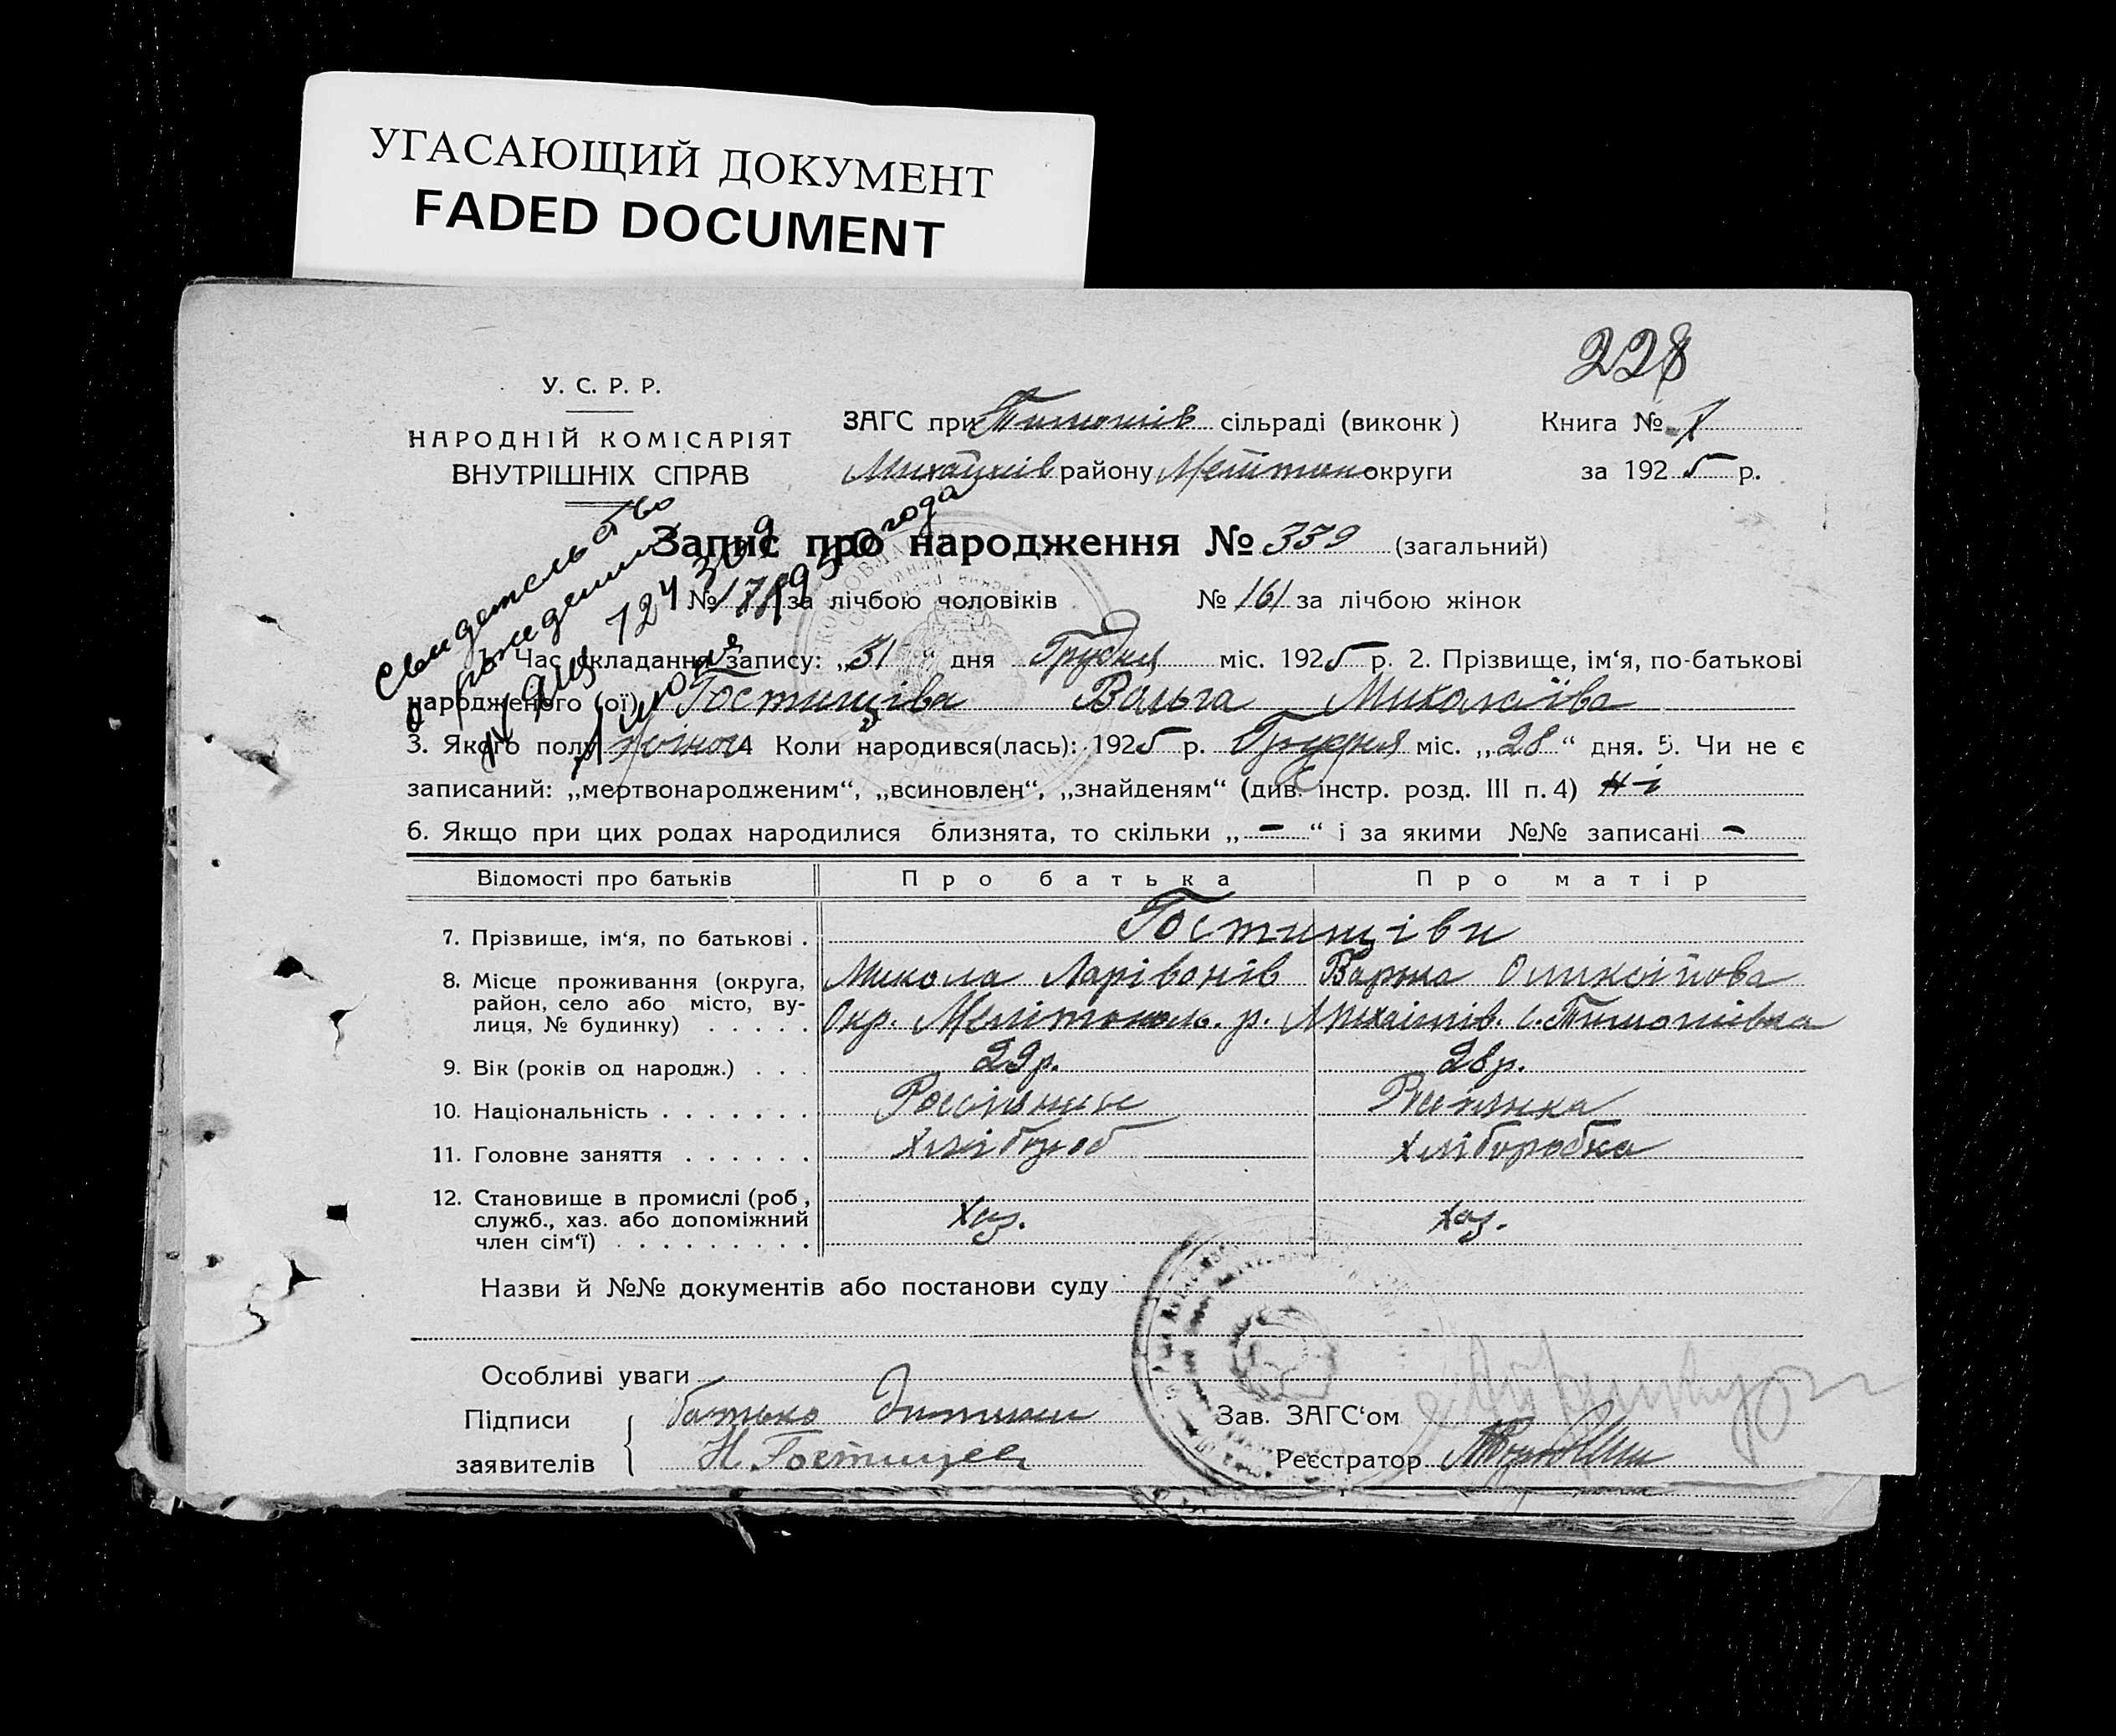 УГАСАЮЩИЙ ДОКУМЕНТ
FADED DOCUMENT
228
У. С. Р. Р.
НАРОДНІЙ КОМІСАРІЯТ
ВНУТРІШНІХ СПРАВ
ЗАГС при Тимошів сільраді (виконк) Книга № 1
Михайлів району Мелітоп округи за 1925 р.
Свидетельство
о рождении
724309
1950 года
Запис про народження № 339 (загальний)
№ 178 за лічбою чоловіків № 161 за лічбою жінок
Час складання запису: „31“ дня Грудня міс. 1925 р. 2. Прізвище, ім‘я, по-батькові
народженого (ої) Гостищіва Вольга Миколаїва
3. Якого полу жіночі 4 Коли народився(лась): 1925 р. Грудня міс. „28“ дня. 5. Чи не є
записаний: „мертвонародженим“, „всиновлен“, „знайденям“ (див. інстр. розд. III п. 4) ні
6. Якщо при цих родах народилися близнята, то скільки „-“ і за якими №№ записані -
Відомості про батьків Про батька Про матір
7. Прізвище, ім‘я, по батькові . Гостищіви
Микола Ларівонів Варька
8. Місце проживання (округа, район, село або місто, вулиця, № будинку) . . . . . Окр. Мелітополь. р. Михайлів. с. Тимошівка
9. Вік (років од народж.) . . . 29 р. 28 р.
10. Національність . . . . . . . Росіянин Росіянка
11. Головне заняття . . . . . . хлібороб хліборобка
12. Становище в промислі (роб, служб., хаз. або допоміжний член сім‘ї) . . . . . . . . . Хаз. Хаз.
Назви й №№ документів або постанови суду
Особливі уваги
Підписи батько дитини Зав. ЗАГС‘ом
заявителів Н. Гостищев Реєстратор